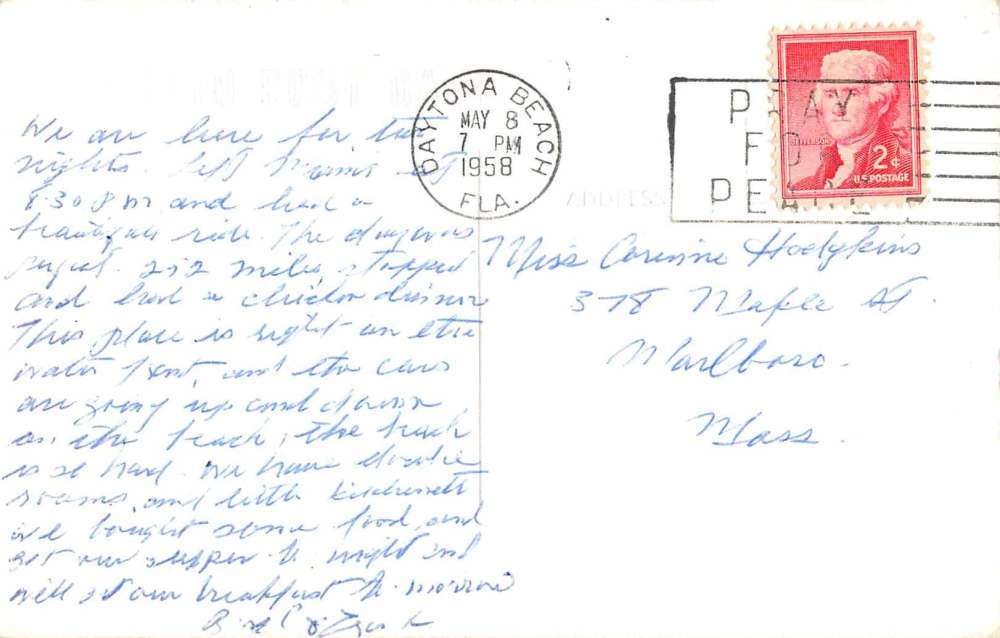 DAYTONA BEACH
MAY 8
7 PM
1958
FLA.
PRAY
FO
PEACE
JEFFERSON
2¢
U.S. POSTAGE
ADDRESS
We are here for two
nights. left Miami at
8:30 am and had a
ride. The day was
252 miles, stopped
and had a chicken dinner
This place is right on the
water front, and the cars
are going up and down
on the beach, the beach
is so hard. We have double
rooms, and little kitchenett
we bought some food, and
our supper to night and
will our breakfast to-morrow
Miss Corinne Hodgkins
378 Maple St.
Marlboro.
Mass.